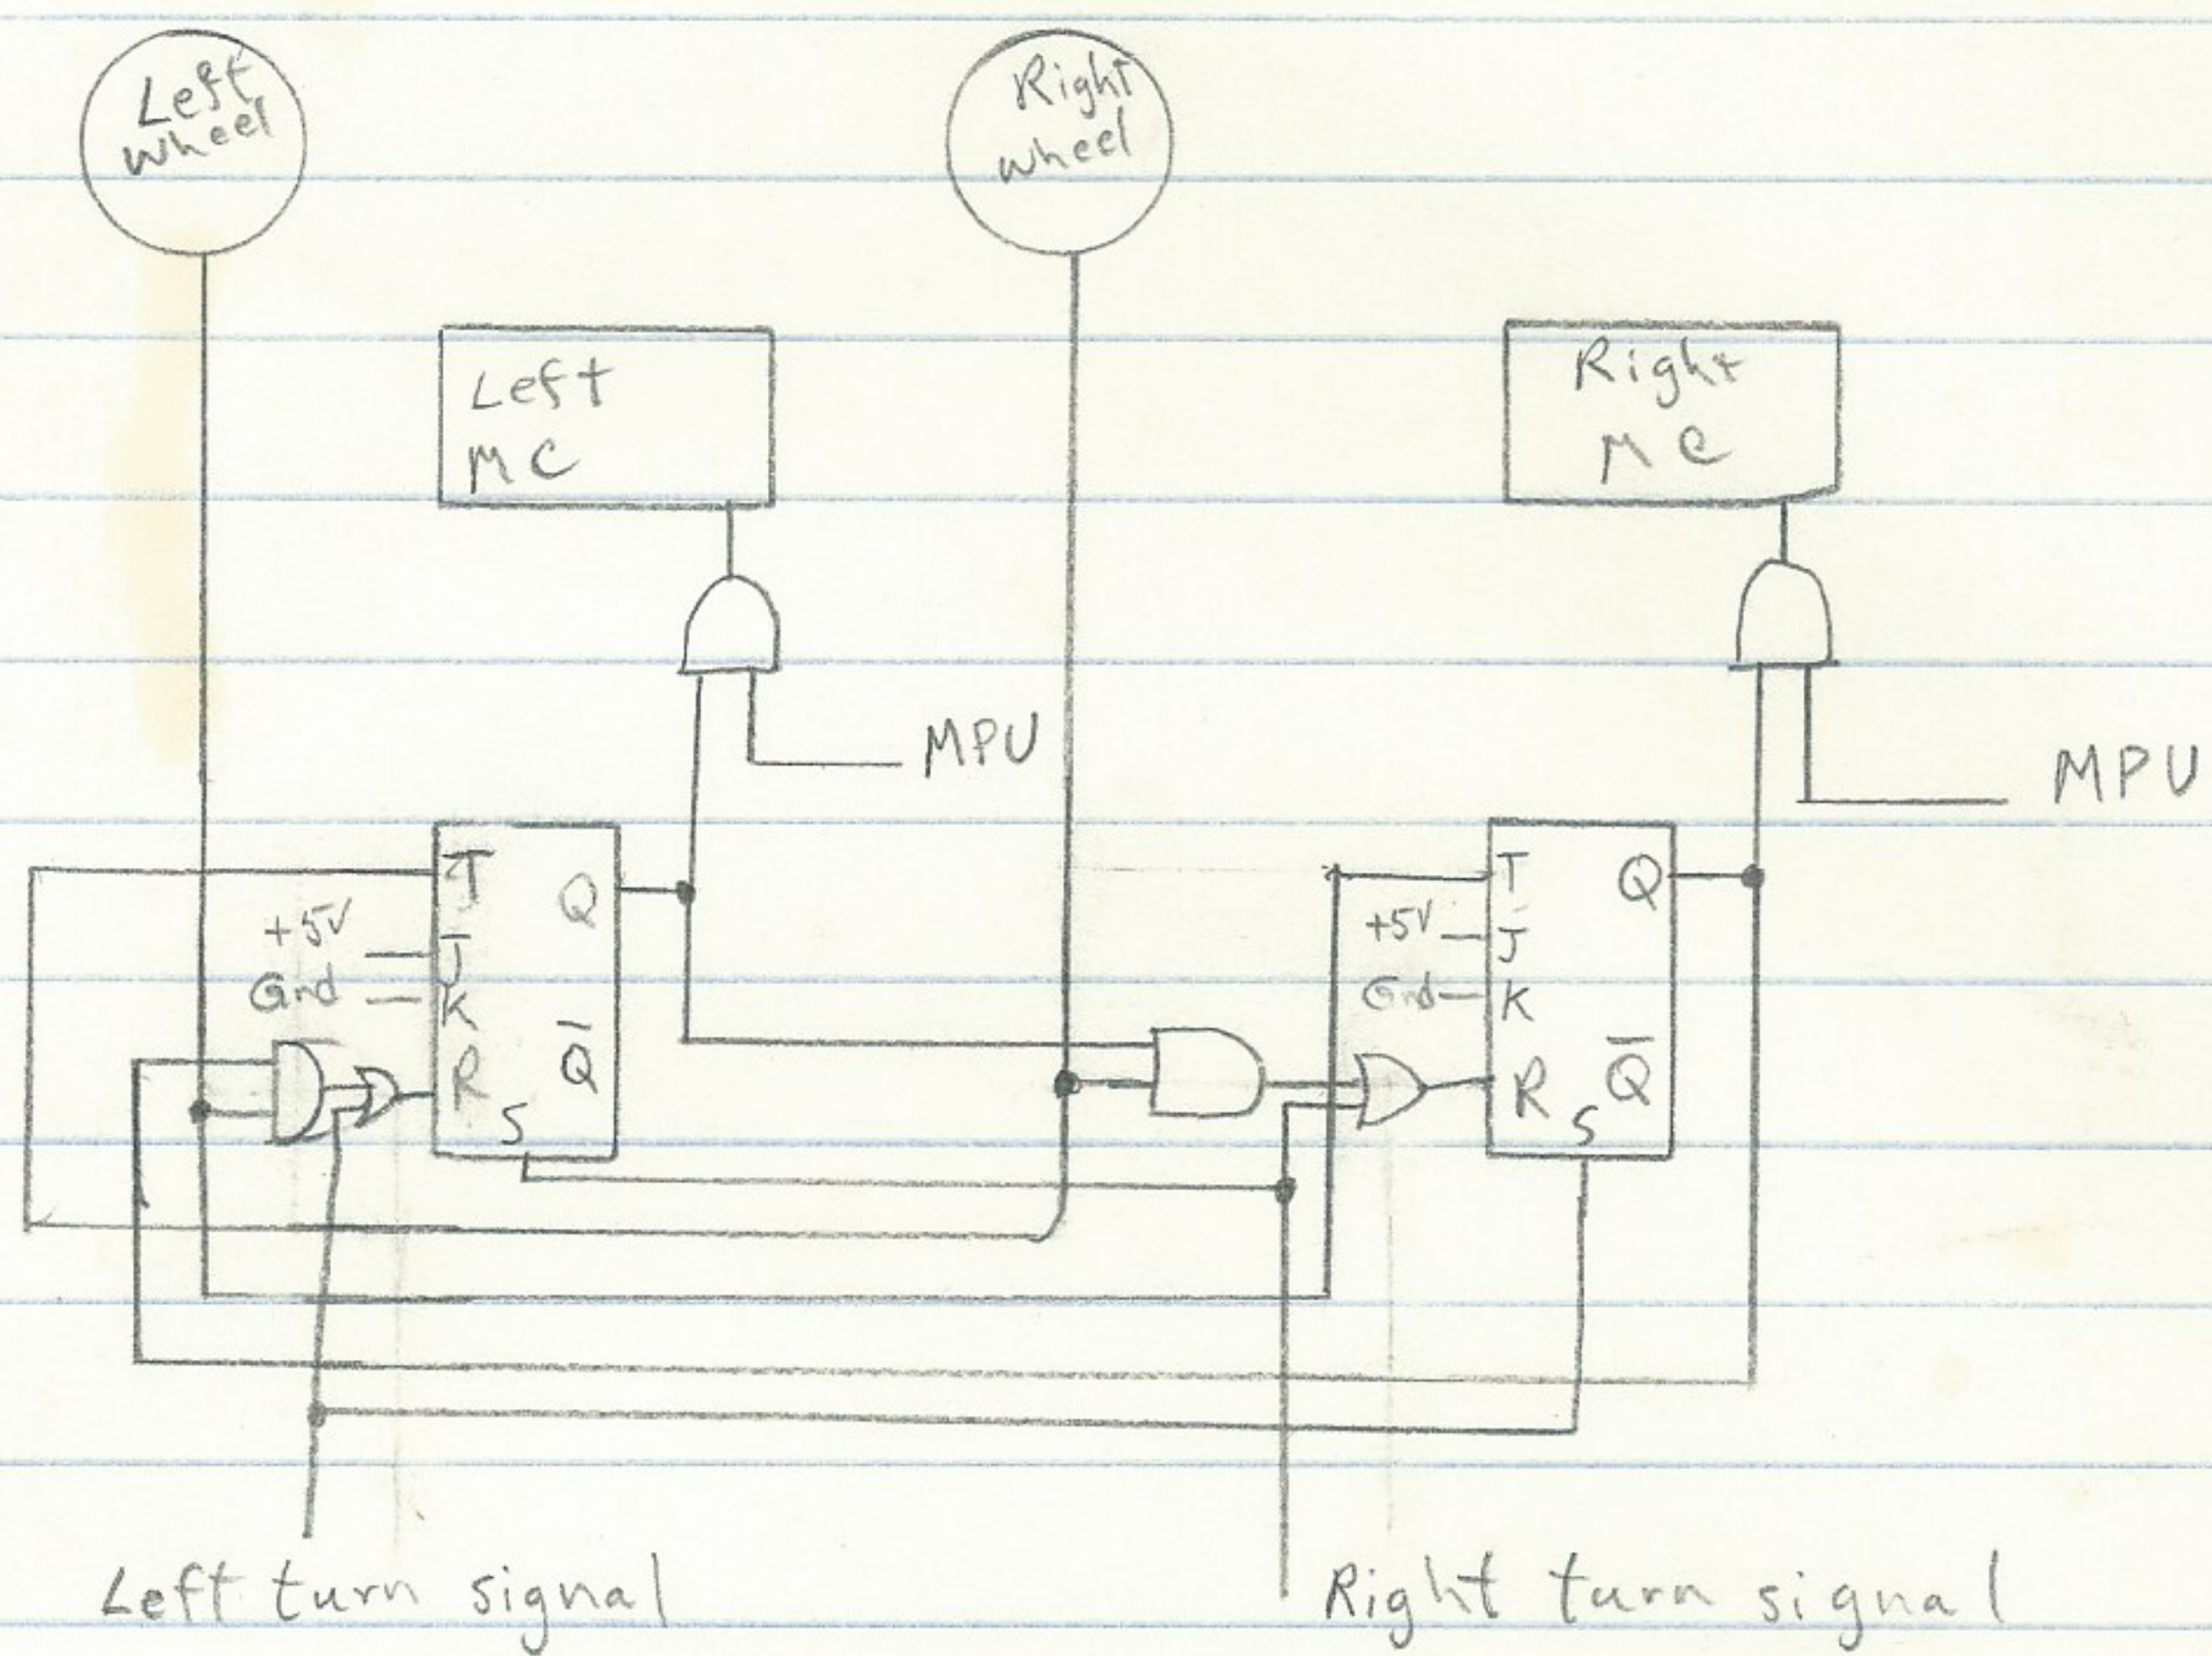 Left
wheel
Right
wheel
Left
MC
Right
MC
MPU
MPU
T
Q
+5V
J
Gnd
K
Q̅
R
S
T
Q
+5V
J
Gnd
K
Q̅
R
S
Left turn signal
Right turn signal